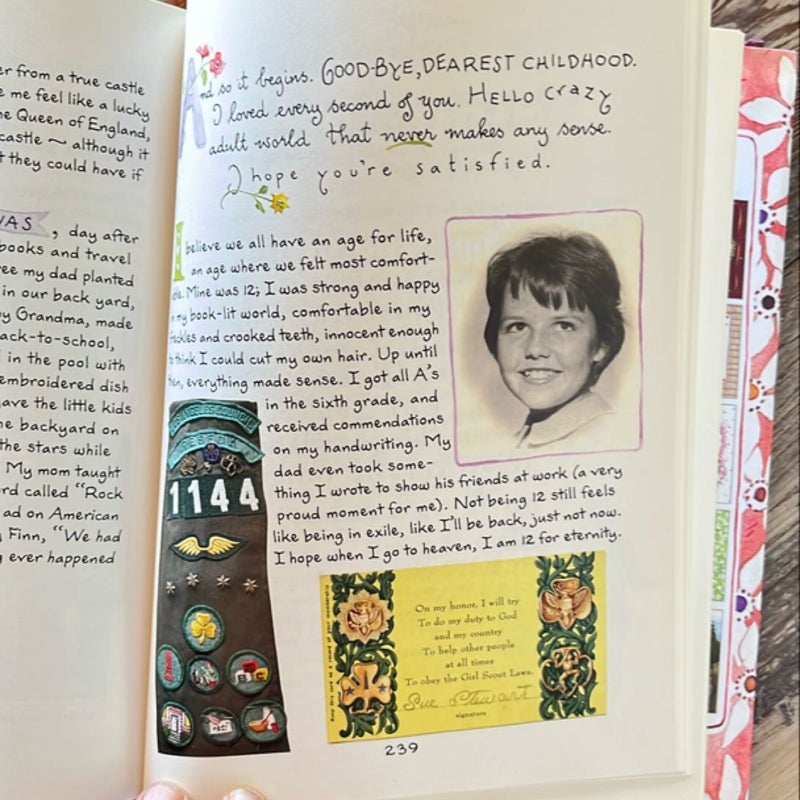 er from a true castle
e me feel like a lucky
he Queen of England,
castle ~ although it
t they could have if
WAS, day after
books and travel
ree my dad planted
in our back yard,
by Grandma, made
ack-to-school,
in the pool with
embroidered dish
gave the little kids
he backyard on
the stars while
My mom taught
rd called "Rock
ad on American
Finn, "We had
g ever happened
And so it begins. GOOD-BYE, DEAREST CHILDHOOD.
I loved every second of you. HELLO crazy
adult world that never makes any sense.
I hope you're satisfied.
I believe we all have an age for life,
an age where we felt most comfort-
able. Mine was 12; I was strong and happy
in my book-lit world, comfortable in my
freckles and crooked teeth, innocent enough
to think I could cut my own hair. Up until
then, everything made sense. I got all A's
in the sixth grade, and
received commendations
on my handwriting. My
dad even took some-
thing I wrote to show his friends at work (a very
proud moment for me). Not being 12 still feels
like being in exile, like I'll be back, just not now.
I hope when I go to heaven, I am 12 for eternity.
1144
Keep this card as a record of your membership
On my honor, I will try
To do my duty to God
and my country
To help other people
at all times
To obey the Girl Scout Laws.
Sue Stewart
signature
239